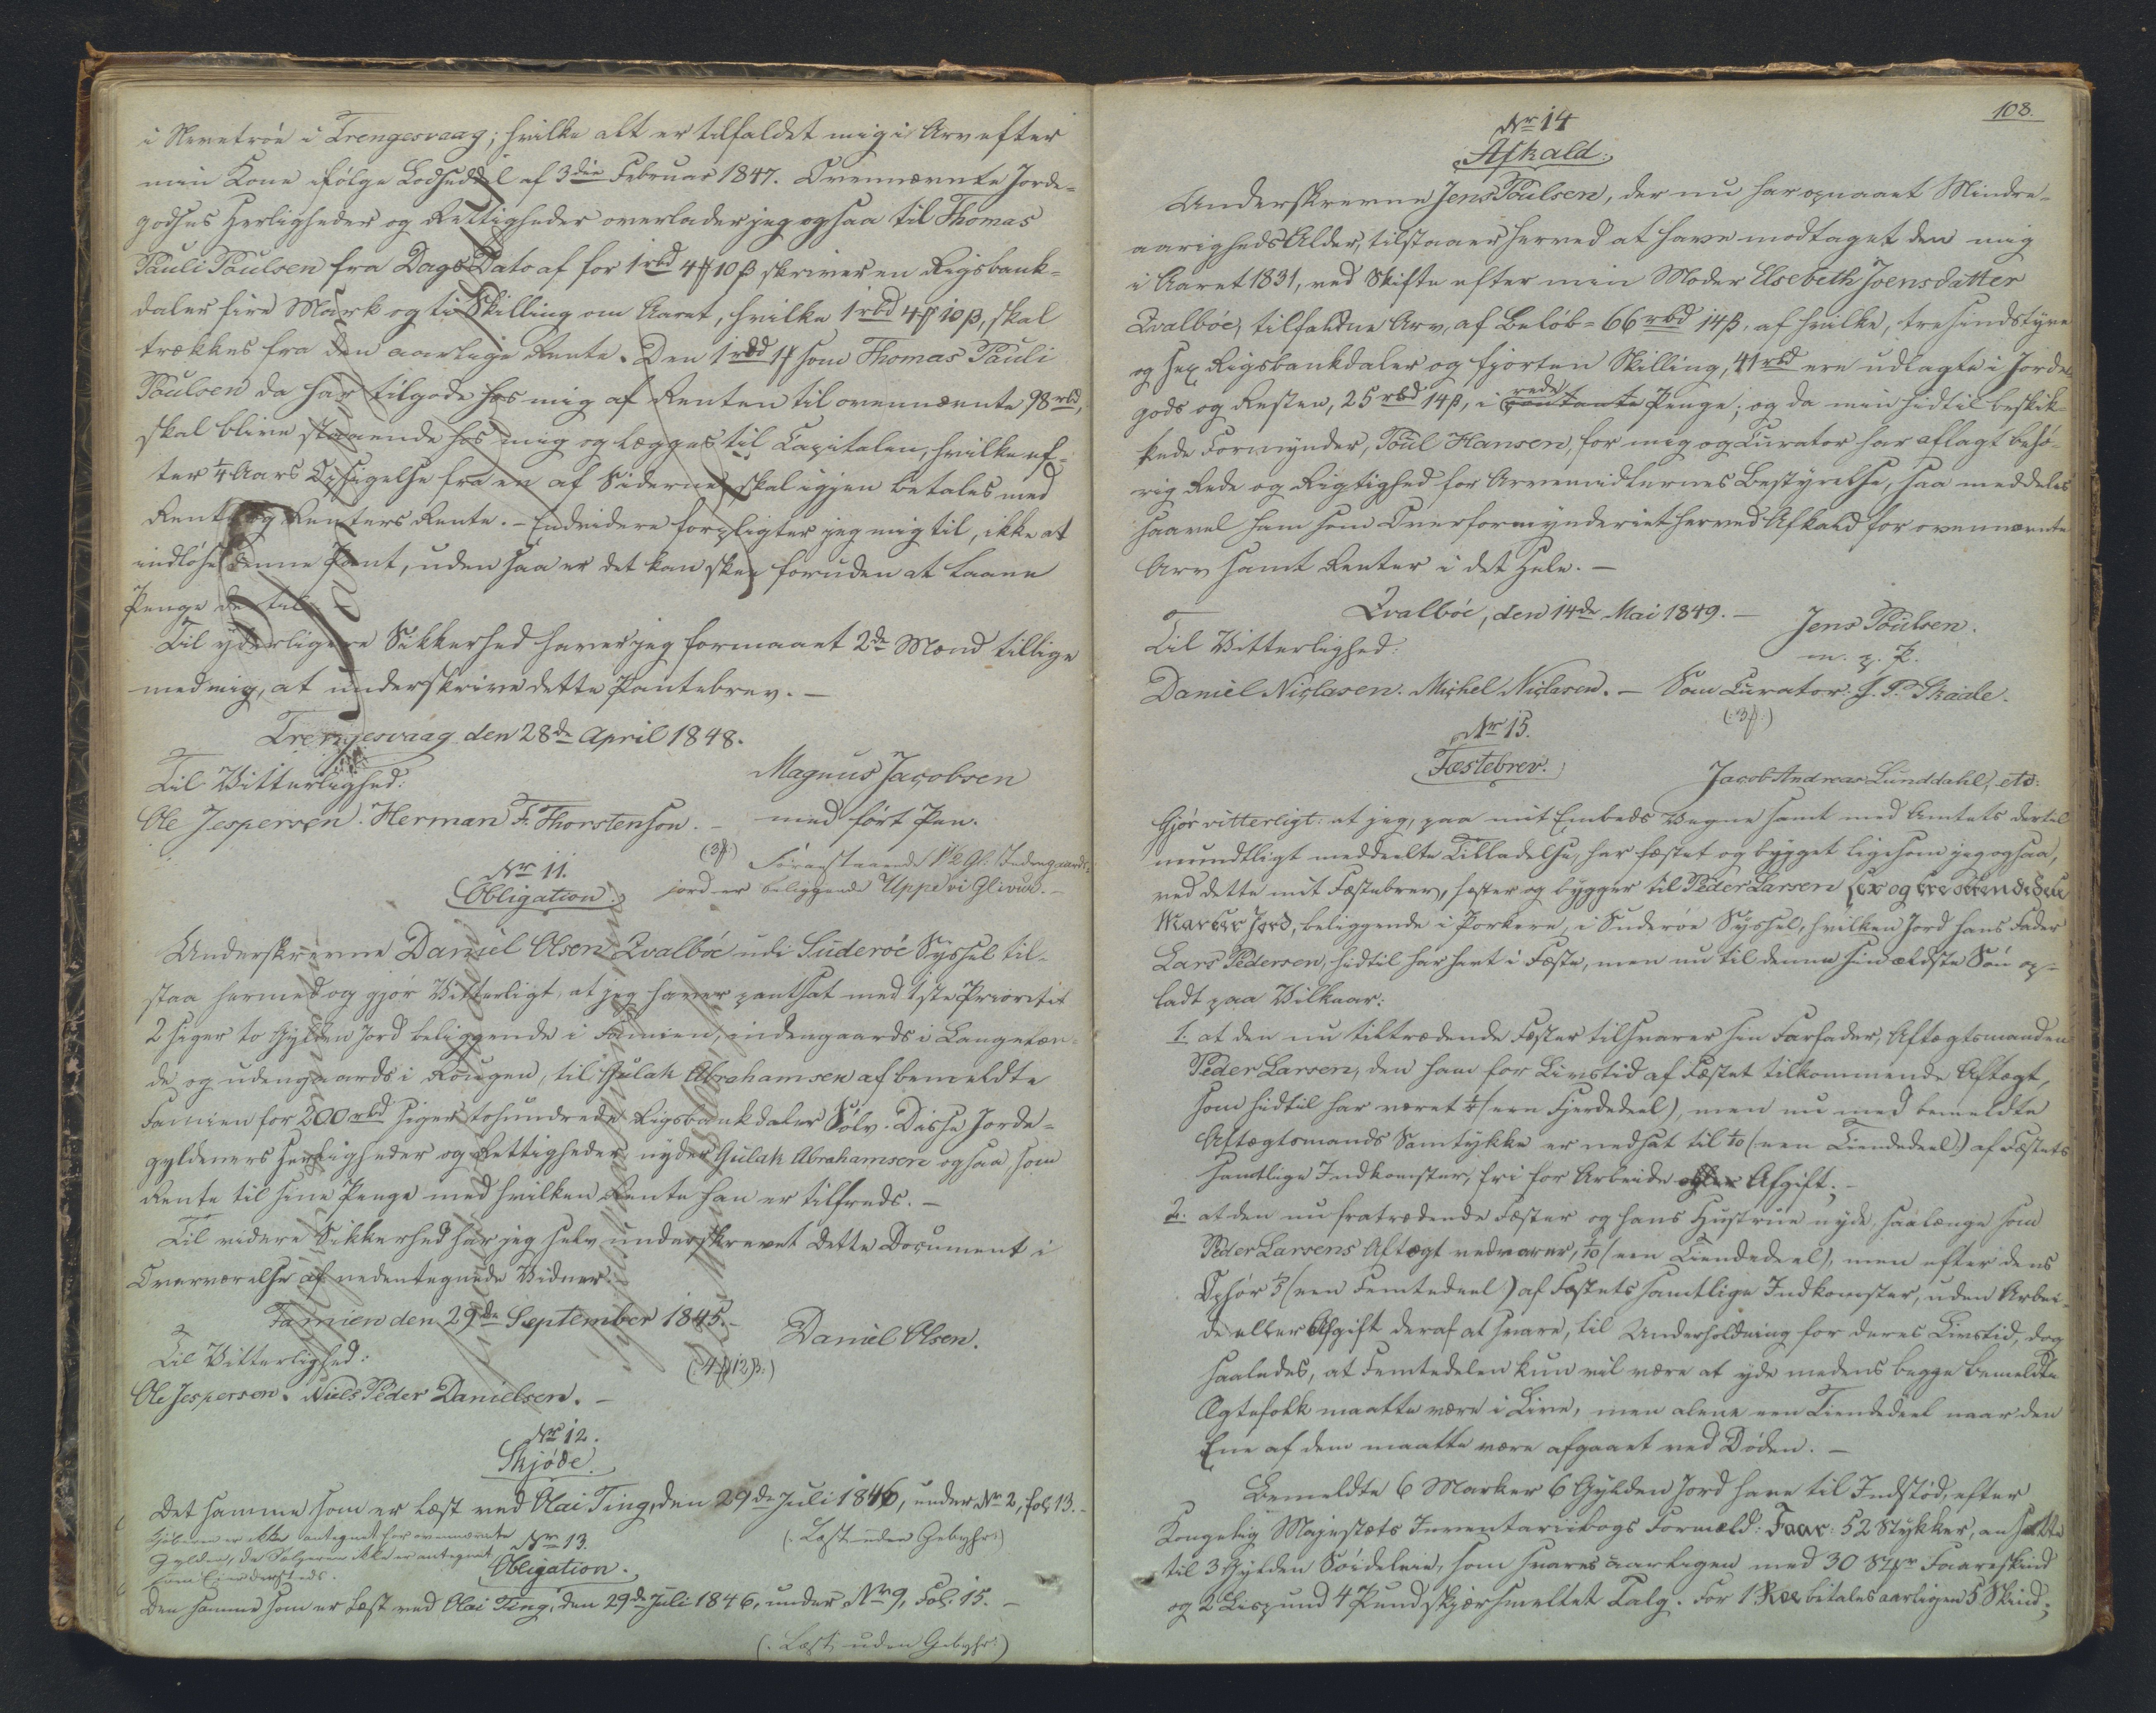 i Neretröe i Trengesvaag; hvilke alt er tilfaldet mig i Arv efter
min Kone ifölge Lodseddel af 3die Februar 1847. Ovennævnte Jorde-
godses Herligheder og Rettigheder overlader jeg ogsaa til Thomas
Pauli Poulsen fra Dags Dato af for 1rbd 4# 10 β skriver en Rigsbank-
daler fire Mark og ti Skilling om Aaret, hvilke 1rbd 4# 10 β, skal
trækkes fra den aarlige Rente. Den 1rbd 1# som Thomas Pauli
Poulsen da har tilgode hos mig af Renten til ovennævnte 98rbd,
skal blive staaende hos mig og lægges til Capitalen, hvilke ef-
ter 1/4 Aars Opsigelse fra en af Siderne, skal igjen betales med
Rente og Renters Rente. – Endvidere forpligter jeg mig til, ikke at
indlöse denne Pant, uden saa er det kan skee foruden at laane
Penge dertil. –
Til yderligere Sikkerhed haver jeg formaaet 2de Mænd tillige
med mig, at underskrive dette Pantebrev. –
Trengesvaag den 28de April 1848.
Til Vitterlighed: Magnus Jacobsen
Ole Jespersen. Herman F. Thorstenson. – med fört Pen.
(3#) Foranstaaende 1 1/2 Gl. Indengaards-
No 11. jord er beliggende Uppe vi Glivur. –
Obligation.
Underskrevne Daniel Olsen Qvalböe udi Suderöe Syssel til-
staa hermed og gjör Vitterligt, at jeg haver pantsat med 1ste Prioritet
2 siger to Gylden Jord beliggende i Famien, indengaards i Langelæn-
de og udengaards i Rougen, til Gulak Abrahamsen af bemeldte
Famien for 200rbd siger tohundrede Rigsbankdaler Sölv. Disse Jorde-
gyldeners Herligheder og Rettigheder nyder Gulak Abrahamsen ogsaa som
Rente til sine Penge med hvilken Rente han er tilfreds. –
Til videre Sikkerhed har jeg selv underskrevet dette Document i
Overværelse af nedentegnede Vidner.
Famien den 29de September 1845. –
Til Vitterlighed: Daniel Olsen.
Ole Jespersen. Niels Peder Danielsen. – (4# 12β.)
No 12.
Skjöde.
Det samme som er læst ved Olai Ting, den 29de Juli 1846, under No 2, fol. 13. –
(: Læst uden Gebyhr:)
Kjöberen er ikke antegnet for ovennævnte
Gylden, da Sælgeren ikke er antegnet
som Eier dersteds.
No 13.
Obligation.
Den samme som er læst ved Olai Ting, den 29de Juli 1846, under No 9, Fol. 15. –
(: Læst uden Gebyhr:)
108.
No 14
Afkald.
Underskrevne Jens Poulsen, der nu har opnaaet Mindre-
aarigheds Alder, tilstaaer herved at have modtaget den mig
i Aaret 1831, ved Skifte efter min Moder Elsebeth Joensdatter
Qvalböe, tilfaldne Arv, af Belöb = 66rbd 14β, af hvilke, tresindstyve
og sex Rigsbankdaler og fjorten Skilling, 41rbd ere udlagte i Jorde-
gods og Resten, 25rbd 14β, i contante rede Penge; og da min hidtil beskik-
kede Formynder, Poul Hansen, for mig og Curator har aflagt behö-
rig Rede og Rigtighed for Arvemidlernes Bestyrelse, saa meddeles
saavel ham som Overformynderiet herved Afkald for ovennævnte
Arv samt Renter i det Hele. –
Qvalböe, den 14de Mai 1849. – Jens Poulsen.
Til Vitterlighed: m. p. P.
Daniel Niclasen. Michel Niclasen. – Som Curator: J. P. Skaale.
(:3#:)
No 15.
Fæstebrev.
Jacob Andreas Lunddahl, etc:
Gjör vitterligt: at jeg, paa mit Embeds Vegne samt med Amtets dertil
mundtligt meddeelte Tilladelse, har fæstet og bygget ligesom jeg ogsaa,
ved dette mit Fæstebrev, fæster og bygger til Peder Larsen sex og tre ottendedele
Marker Jord, beliggende i Porkere, i Suderöe Syssel, hvilken Jord hans Fader
Lars Pedersen, hidtil har havt i Fæste, men nu til denne sin ældste Sön op-
ladt paa Vilkaar:
1. at den nu tiltrædende Fæster tilsvarer sin Farfader, Aftægtsmanden
Peder Larsen, den ham for Livstid af Fæstet tilkommende Aftægt,
som hidtil har været 1/4 (een Fjerdedeel), men nu med bemeldte
Aftægtsmands Samtykke er nedsat til 1/10 (een Tiendedeel) af Fæstets
samtlige Indkomster, fri for Arbeide eller Afgift; –
2. at den nu fratrædende Fæster og hans Hustrue nyde, saalænge som
Peder Larsens Aftægt vedvarer, 1/10 (een Tiendedeel), men efter dens
Ophör 1/5 (een Femtedeel) af Fæstets samtlige Indkomster, uden Arbei-
de eller Afgift deraf at svare, til Underholdning for deres Livstid, dog
saaledes, at Femtedelen kun vil være at yde medens begge bemeldte
Ægtefolk maatte være i Live, men alene een Tiendedeel naar den
Ene af dem maatte være afgaaet ved Döden. –
Bemeldte 6 Marker 6 Gylden Jord have til Indstöd, efter
Kongelig Majestæts Inventariibogs Formeld: Faar: 52 Stykker, ansatte
til 3 Gylden Söideleie, som svares aarligen med 30 Stkr Faareskind
og 2 Lispund 4 Pund skjærsmeltet Talg. For 1 Koe betales aarligen 5 Skind;